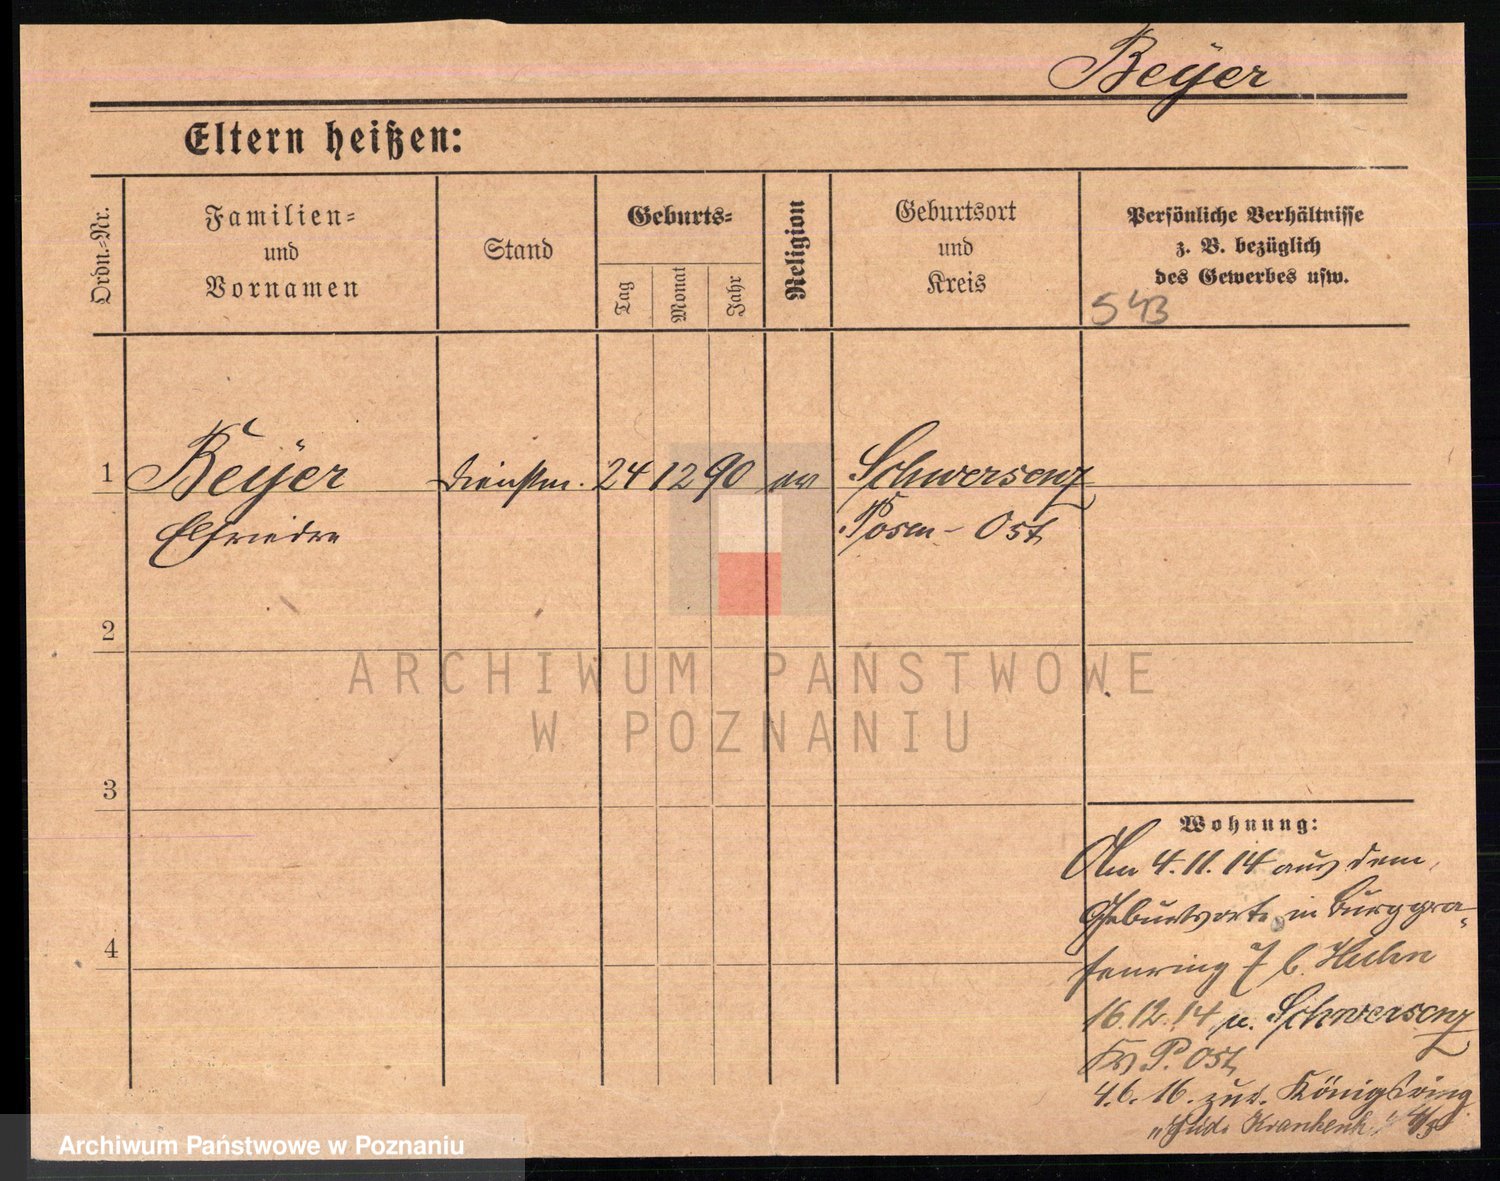 Beyer
Eltern heißen:
Ordn.=Nr.
Familien=
und
Vornamen
Stand
Geburts=
Tag
Monat
Jahr
Religion
Geburtsort
und
Kreis
Persönliche Verhältnisse
z. B. bezüglich
des Gewerbes usw.
543
1 Beyer Dienstm. 24 12 90 ev Schwersenz
Elfriede Posen - Ost
2
ARCHIWUM PAŃSTWOWE
W POZNANIU
3
Wohnung:
Am 4.11.14 aus dem
Geburtsorte in Burggra-
fenring 7 b.
16.12.14 n. Schwersenz
Kr P. Ost
4.6.16. zur. Königsring
"Jüd. Krankenh."
4
Archiwum Państwowe w Poznaniu